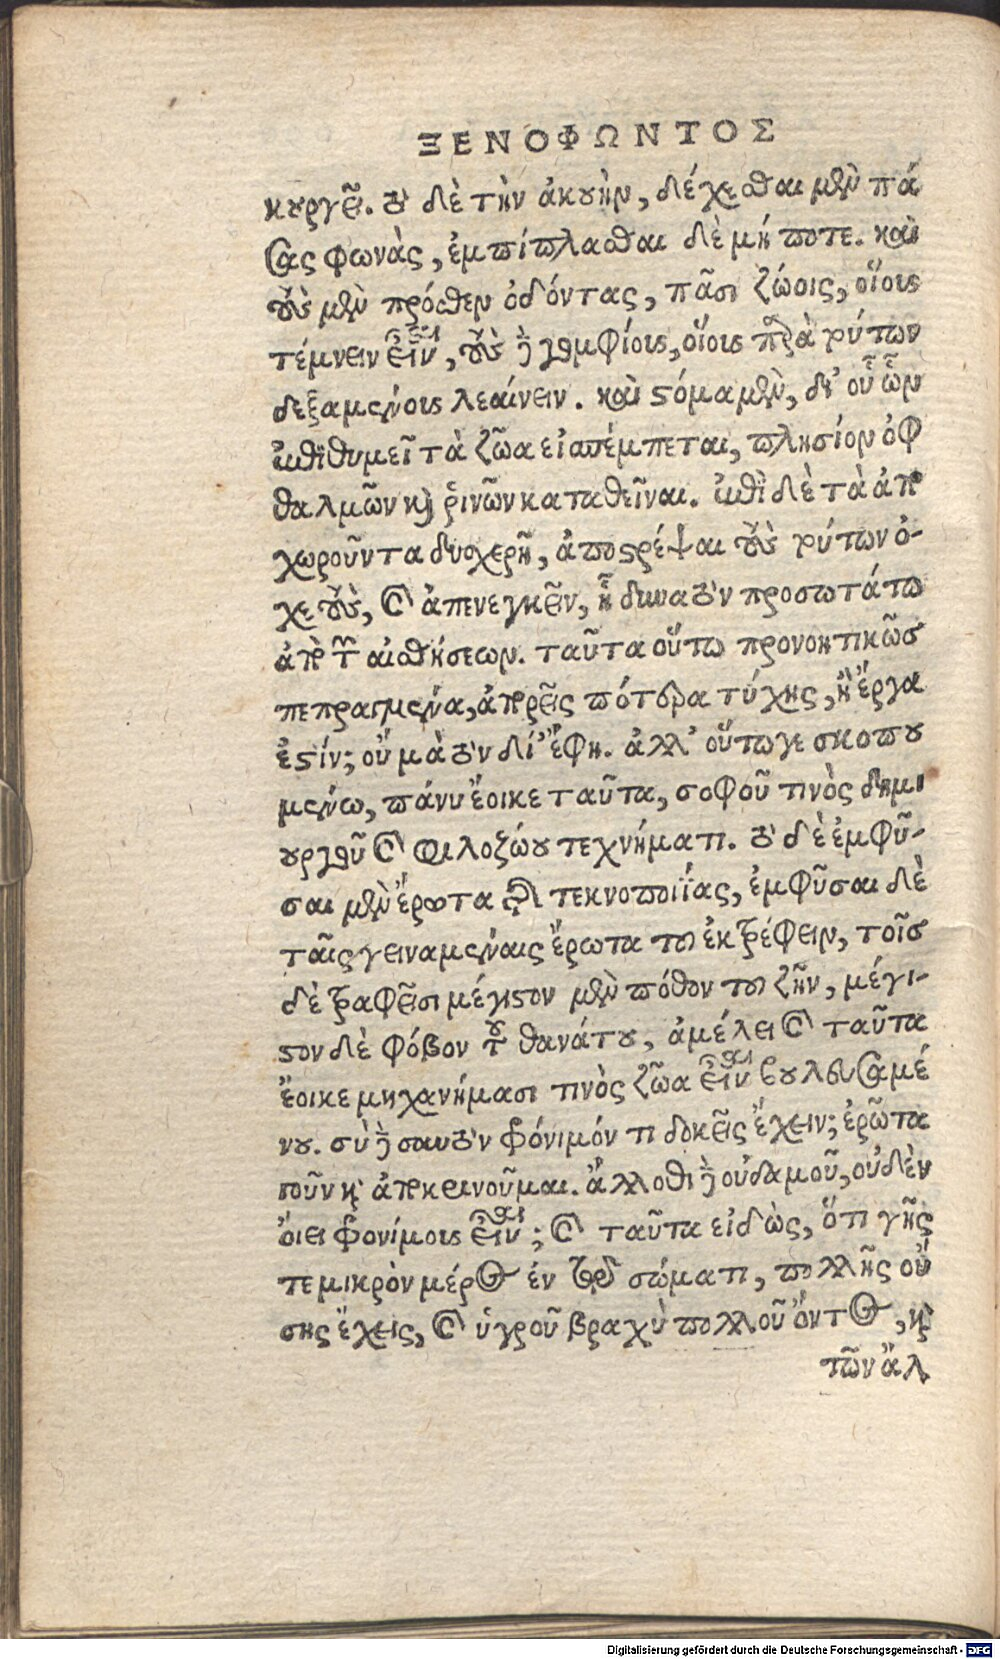 ΞΕΝΟΦΩΝΤΟΣ
κουργεῖ. τὸ δὲ τὴν ἀκοὴν, δέχεσθαι μὲν πά
σας φωνὰς, ἐμπίπλασθαι δὲ μήποτε. καὶ
τοὺς μὲν πρόσθεν ὀδόντας, πᾶσι ζώοις, οἵους
τέμνειν εἶναι, τοὺς δὲ γομφίους, οἵους παρὰ τούτων
δεξαμένους λεαίνειν. καὶ στόμα μὲν, δι' οὗ ὧν
ἐπιθυμεῖ τὰ ζῶα εἰσπέμπεται, πλησίον ὀφ
θαλμῶν καὶ ῥινῶν καταθεῖναι. ἐπεὶ δὲ τὰ ἀπο
χωροῦντα δυσχερῆ, ἀποστρέψαι τοὺς τούτων ὀ-
χετοὺς, καὶ ἀπενεγκεῖν, ᾗ δυνατὸν προσωτάτω
ἀπὸ τῶν αἰσθήσεων. ταῦτα οὕτω προνοητικῶς
πεπραγμένα, ἀπορεῖς πότερα τύχης, ἢ ἔργα
ἐστίν; οὐ μὰ τὸν δί' ἔφη. ἀλλ' οὕτωγε σκοπου
μένω, πάνυ ἔοικε ταῦτα, σοφοῦ τινὸς δημι
ουργοῦ καὶ φιλοζώου τεχνήματι. τὸ δὲ ἐμφῦ-
σαι μὲν ἔρωτα τῆς τεκνοποιΐας, ἐμφῦσαι δὲ
ταῖς γειναμέναις ἔρωτα τοῦ ἐκτρέφειν, τοῖς
δὲ τραφεῖσι μέγιστον μὲν πόθον τοῦ ζῆν, μέγι-
στον δὲ φόβον τοῦ θανάτου, ἀμέλει καὶ ταῦτα
ἔοικε μηχανήμασι τινὸς ζῶα εἶναι βουλευσαμέ
νου. σὺ δὲ σαυτὸν φρόνιμόν τι δοκεῖς ἔχειν; ἐρῶτα
γοῦν καὶ ἀποκρινοῦμαι. ἄλλοθι δὲ οὐδαμοῦ, οὐδὲν
οἴει φρόνιμον εἶναι; καὶ ταῦτα εἰδὼς, ὅτι γῆς
τε μικρὸν μέρος ἐν τῷ σώματι, πολλῆς οὔ
σης ἔχεις, καὶ ὑγροῦ βραχὺ πολλοῦ ὄντος, καὶ
τῶν ἄλ
Digitalisierung gefördert durch die Deutsche Forschungsgemeinschaft - DFG